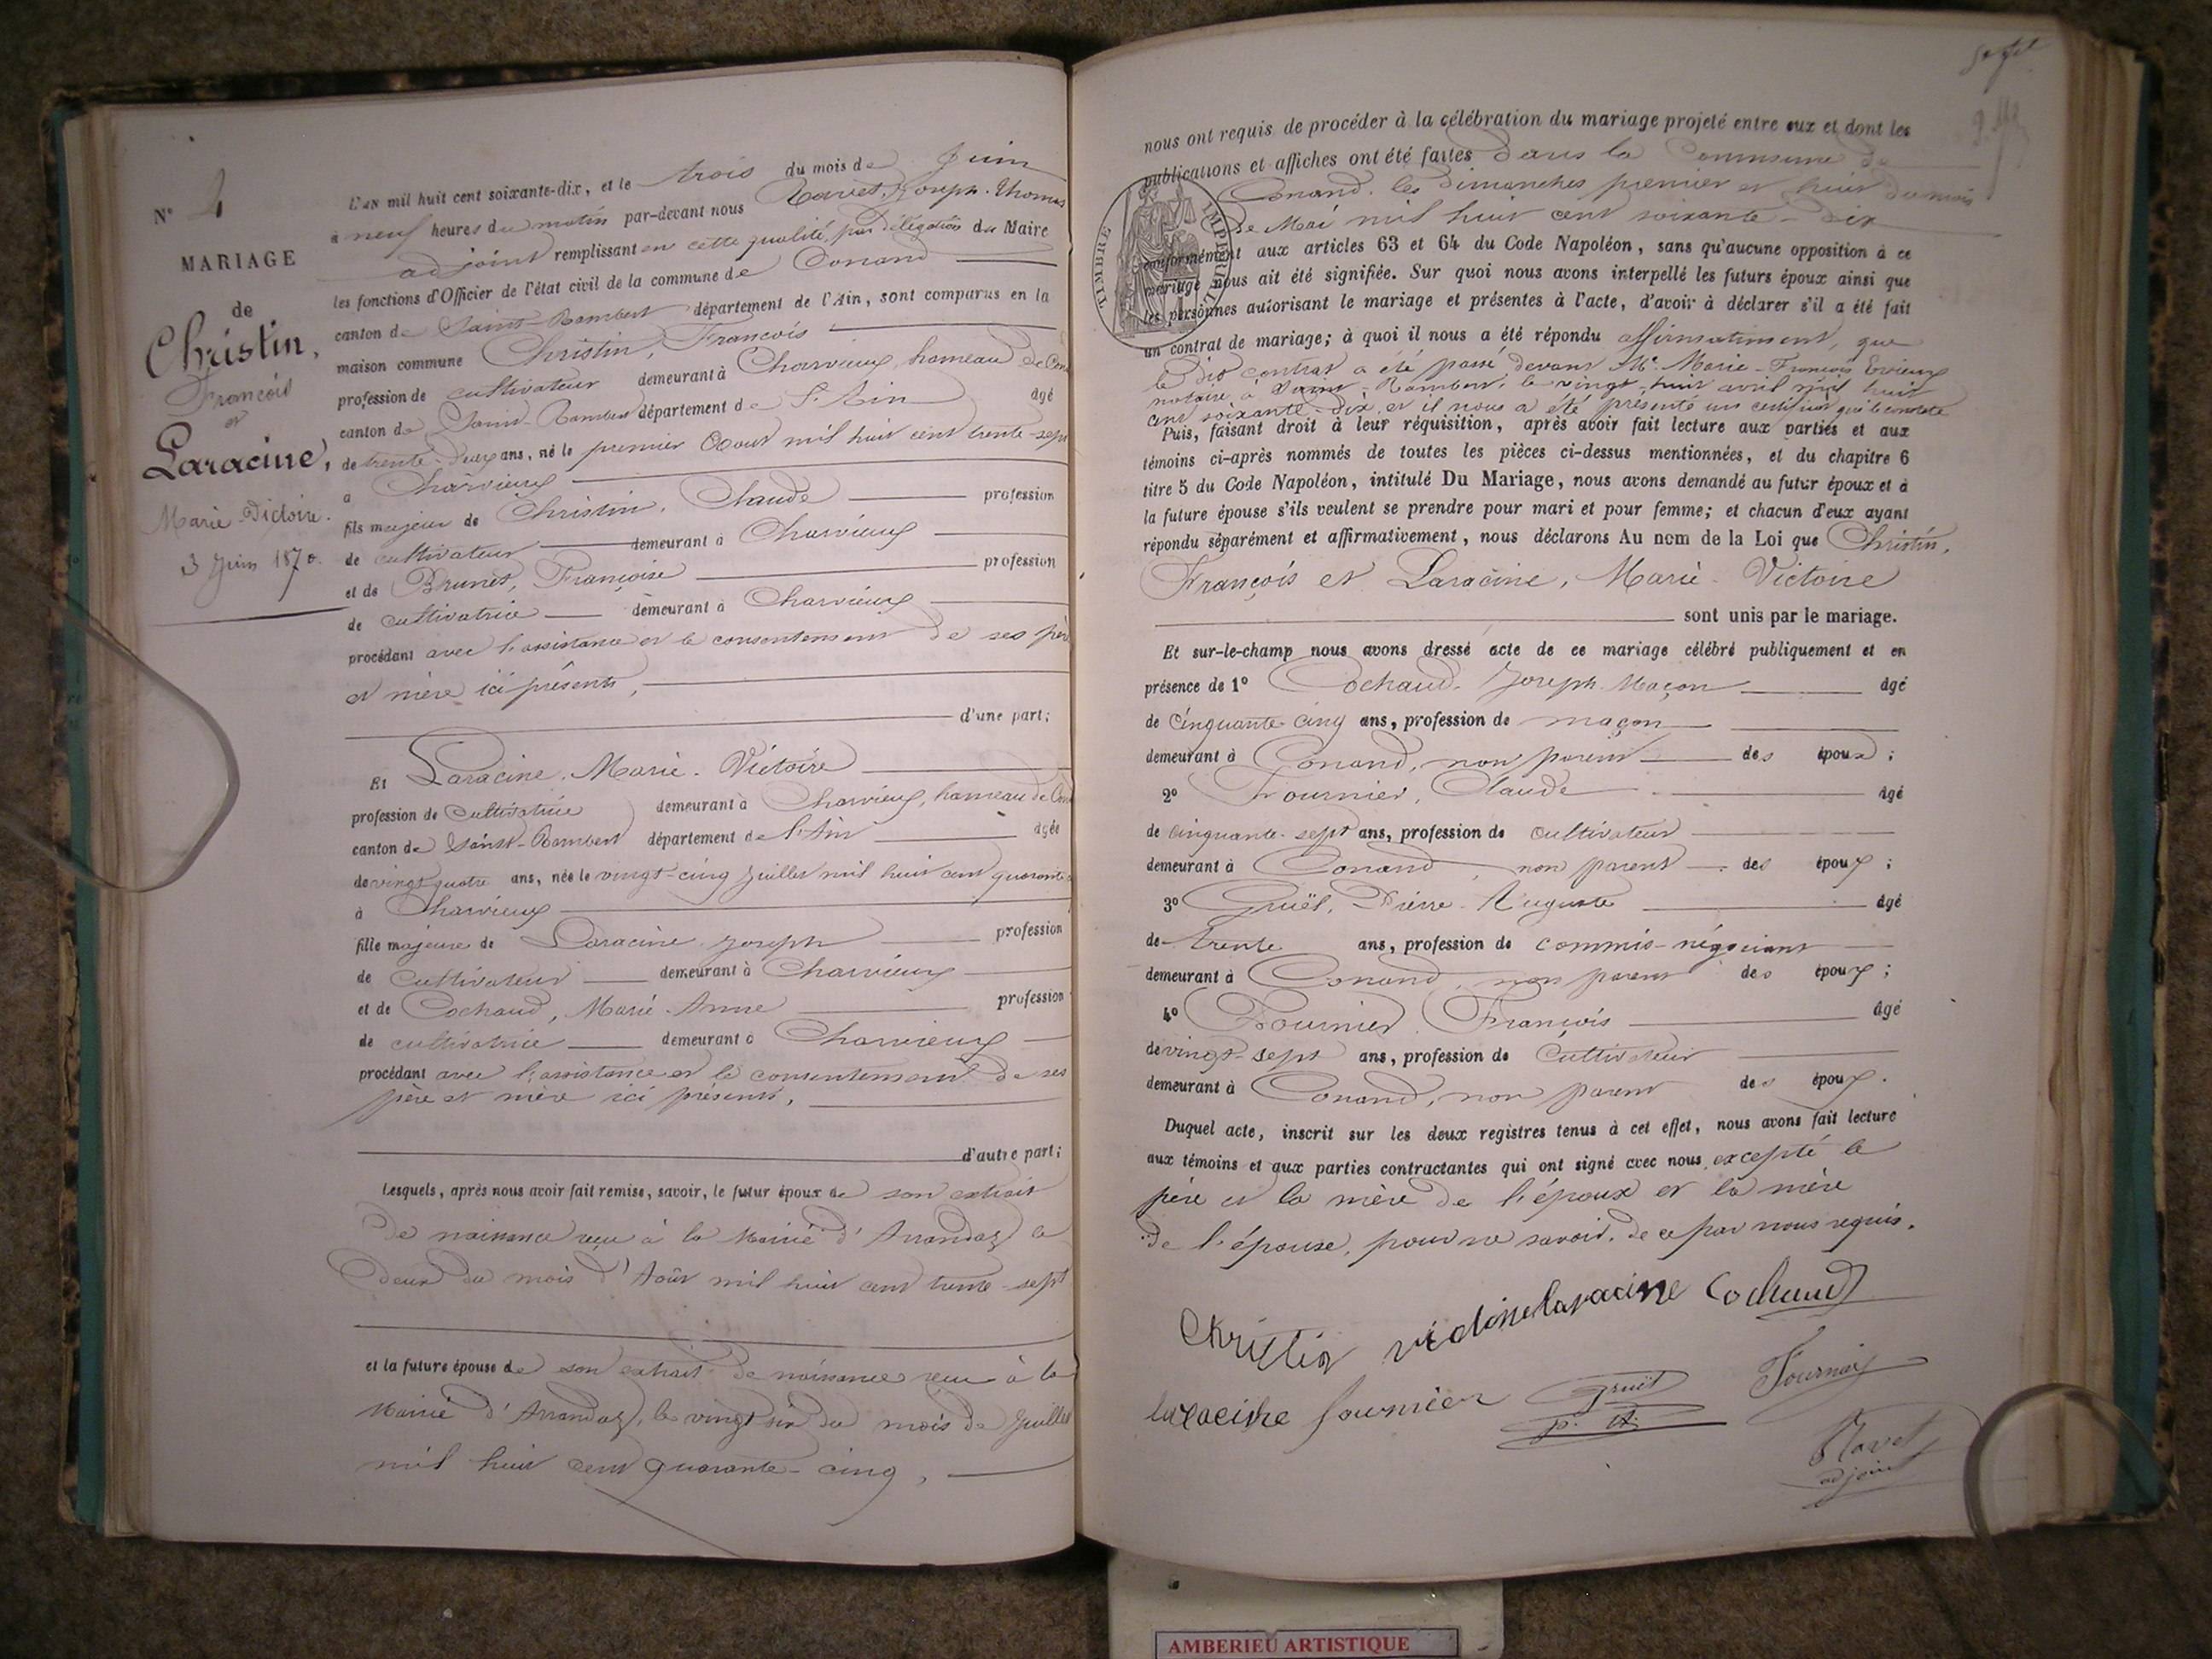 N° 4
MARIAGE
de
Christin,
François
et
Laracine,
Marie-Victoire.
3 Juin 1870.
L'an mil huit cent soixante-dix, et le trois du mois de Juin
à neuf heures du matin par-devant nous Ravet, Joseph-Thomas
adjoint remplissant en cette qualité, par délégation du Maire
les fonctions d'Officier de l'état civil de la commune de Conand
canton de Saint-Rambert département de l'Ain, sont comparus en la
maison commune Christin, François
profession de cultivateur demeurant à Charvieux, hameau de Con
canton de Saint-Rambert département de l'Ain âgé
de trente-deux ans, né le premier Aout mil huit cent trente-sept
à Charvieux
fils majeur de Christin, Claude profession
de cultivateur demeurant à Charvieux
et de Brunet, Françoise profession
de cultivatrice demeurant à Charvieux
procédant avec l'assistance et le consentement de ses père
et mère ici présents,
d'une part;
Et Laracine, Marie-Victoire
profession de cultivatrice demeurant à Charvieux, hameau de Con
canton de Saint-Rambert département de l'Ain âgée
de vingt quatre ans, née le vingt-cinq Juillet mil huit cent quarante
à Charvieux
fille majeure de Laracine Joseph profession
de cultivateur demeurant à Charvieux
et de Cochaud, Marie-Anne profession
de cultivatrice demeurant à Charvieux
procédant avec l'assistance et le consentement de ses
père et mère ici présents,
d'autre part;
Lesquels, après nous avoir fait remise, savoir, le futur époux de son extrait
de naissance reçu à la Mairie d'Arandaz le
deux du mois d'Août mil huit cent trente-sept
et la future épouse de son extrait de naissance reçu à la
Mairie d'Arandaz, le vingt six du mois de Juillet
mil huit cent quarante-cinq,
nous ont requis de procéder à la célébration du mariage projeté entre eux et dont les
publications et affiches ont été faites dans la Commune de
Conand, les dimanches premier et huit du mois
de Mai mil huit cent soixante-dix
TIMBRE IMPÉRIAL
conformément aux articles 63 et 64 du Code Napoléon, sans qu'aucune opposition à ce
mariage nous ait été signifiée. Sur quoi nous avons interpellé les futurs époux ainsi que
les personnes autorisant le mariage et présentes à l'acte, d'avoir à déclarer s'il a été fait
un contrat de mariage; à quoi il nous a été répondu affirmativement, que
le dit contrat a été passé devant Me Marie-François Evieux
notaire à Saint-Rambert, le vingt-huit avril mil huit
cent soixante-dix, et il nous a été présenté un certificat qui le constate
Puis, faisant droit à leur réquisition, après avoir fait lecture aux parties et aux
témoins ci-après nommés de toutes les pièces ci-dessus mentionnées, et du chapitre 6
titre 5 du Code Napoléon, intitulé Du Mariage, nous avons demandé au futur époux et à
la future épouse s'ils veulent se prendre pour mari et pour femme; et chacun d'eux ayant
répondu séparément et affirmativement, nous déclarons Au nom de la Loi que Christin,
François et Laracine, Marie-Victoire
sont unis par le mariage.
Et sur-le-champ nous avons dressé acte de ce mariage célébré publiquement et en
présence de 1° Cochaud-Joseph Maçon âgé
de cinquante-cinq ans, profession de maçon
demeurant à Conand, non parent des époux;
2° Fournier, Claude âgé
de cinquante-sept ans, profession de cultivateur
demeurant à Conand, non parent des époux;
3° Gruët, Pierre-Auguste âgé
de trente ans, profession de commis-négociant
demeurant à Conand, non parent des époux;
4° Fournier, François âgé
de vingt-sept ans, profession de cultivateur
demeurant à Conand, non parent des époux.
Duquel acte, inscrit sur les deux registres tenus à cet effet, nous avons fait lecture
aux témoins et aux parties contractantes qui ont signé avec nous, excepté le
père et la mère de l'époux et la mère
de l'épouse, pour ne savoir, de ce par nous requis.
Christin victoire laracine Cochaud
laracine fournier Gruët Fournier
p. A.
Ravet
adjoint
AMBERIEU ARTISTIQUE